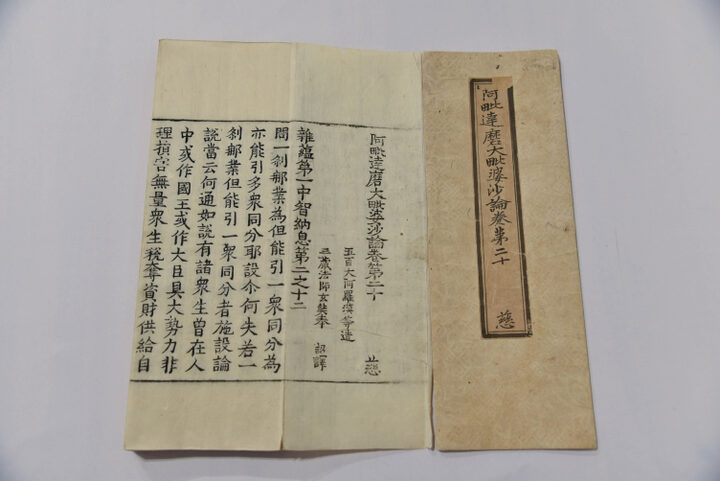 阿毗達磨大毗婆沙論卷第二十 慈
阿毗達磨大毗婆沙論卷第二十 慈
五百大阿羅漢等造
三藏法師玄奘奉 詔譯
雜蘊第一中智納息第二之十二
問一剎那業為但能引一眾同分為
亦能引多眾同分耶設尒何失若一
剎那業但能引一眾同分者施設論
說當云何通如說有諸眾生曽在人
中或作國王或作大臣具大勢力非
理損害無量眾生稅奪資財供給自